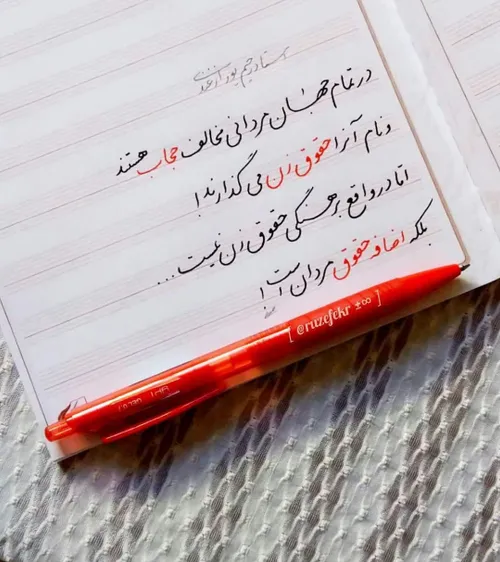 استاد رحیم پور ازغدی
در تمام جهان مردانی مخالف حجاب هستند
و نام آنرا حقوق زن می گذارند!
اما در واقع برهنگی حقوق زن نیست...
بلکه اضافه حقوق مردان است!
[ @ruzefekr ±∞ ]